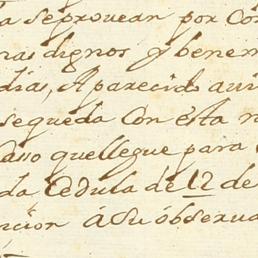 a Seprovean por Co
mas dignos y benem
dias, Aparecido avi
sequeda Con esta n
Caso quellegue para
da Cedula de 12 de
ncion â Su óbserva